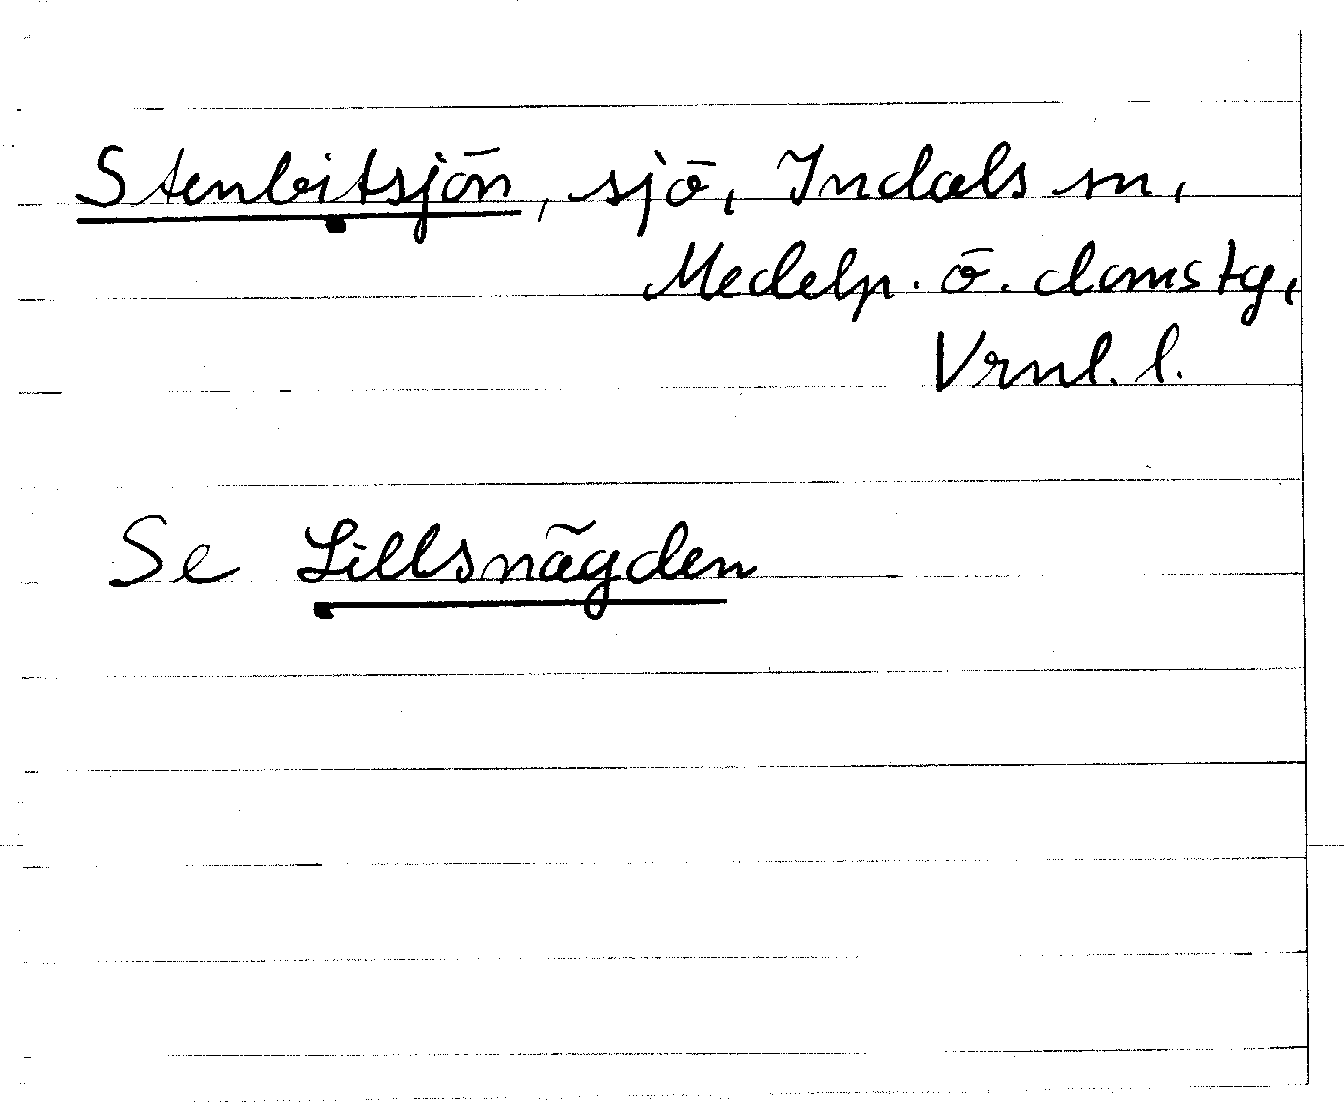 Stenbitsjön, sjö, Indals sn,
Medelp. ö. domstg,
Vrnl. l.
Se Lillsnägden